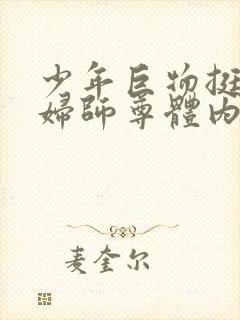 少年巨物挺
婦師尊體內
麦奎尔